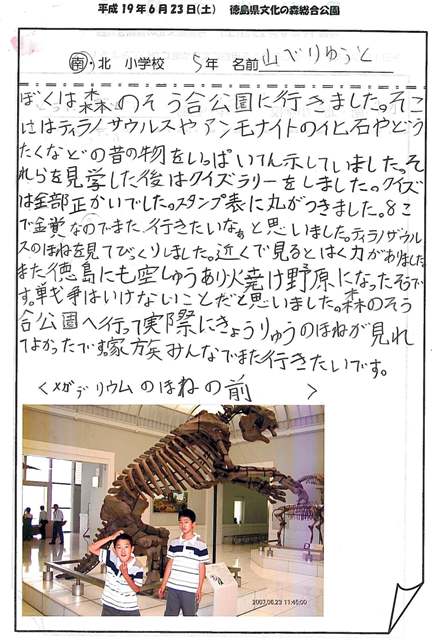 平成19年6月23日(土) 徳島県文化の森総合公園
南・北 小学校 5年 名前 山べりゅうと
ぼくは森のそう合公園に行きました。そこ
にはティラノサウルスやアンモナイトの化石やどう
たくなどの昔の物をいっぱいてん示していました。そ
れらを見学した後はクイズラリーをしました。クイズ
は全部正かいでした。スタンプ表に丸がつきました。8こ
で金賞なのでまた行きたいなあと思いました。ティラノサウル
スのほねを見てびっくりしました。近くで見るとはく力がありました。
また徳島にも空しゅうあり火焼け野原になったそうで
す。戦争はいけないことだと思いました。森のそう
合公園へ行って実際にきょうりゅうのほねが見れ
てよかったです。家族みんなでまた行きたいです。
<メガテリウムのほねの前 >
2007.06.23 11:45:00